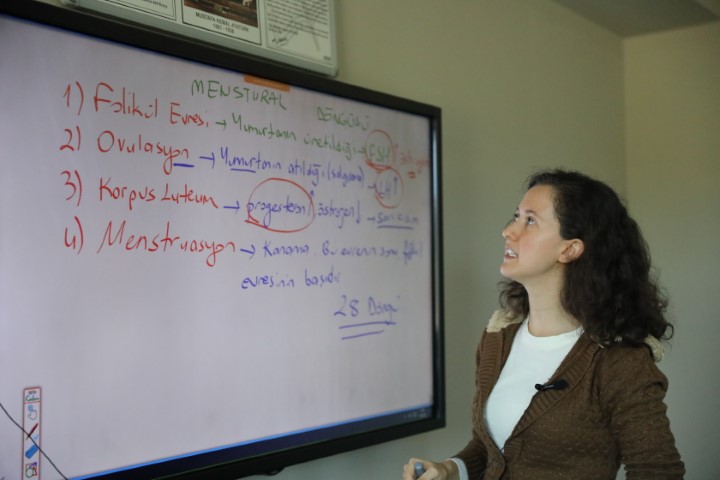 MUSTAFA KEMAL ATATÜRK
1881 - 1938
MENSTURAL DÖNGÜSÜ
1) Folikül Evresi → Yumurtanın üretildiği → FSH↑ östrojen
2) Ovulasyon → Yumurtanın atıldığı (salgılama) → LH↑
3) Korpus Luteum → progesteron↑ östrojen↓ → sarı cisim
4) Menstruasyon → Kanama. Bu evrenin sonu folikül
evresinin başıdır
28 Döngü